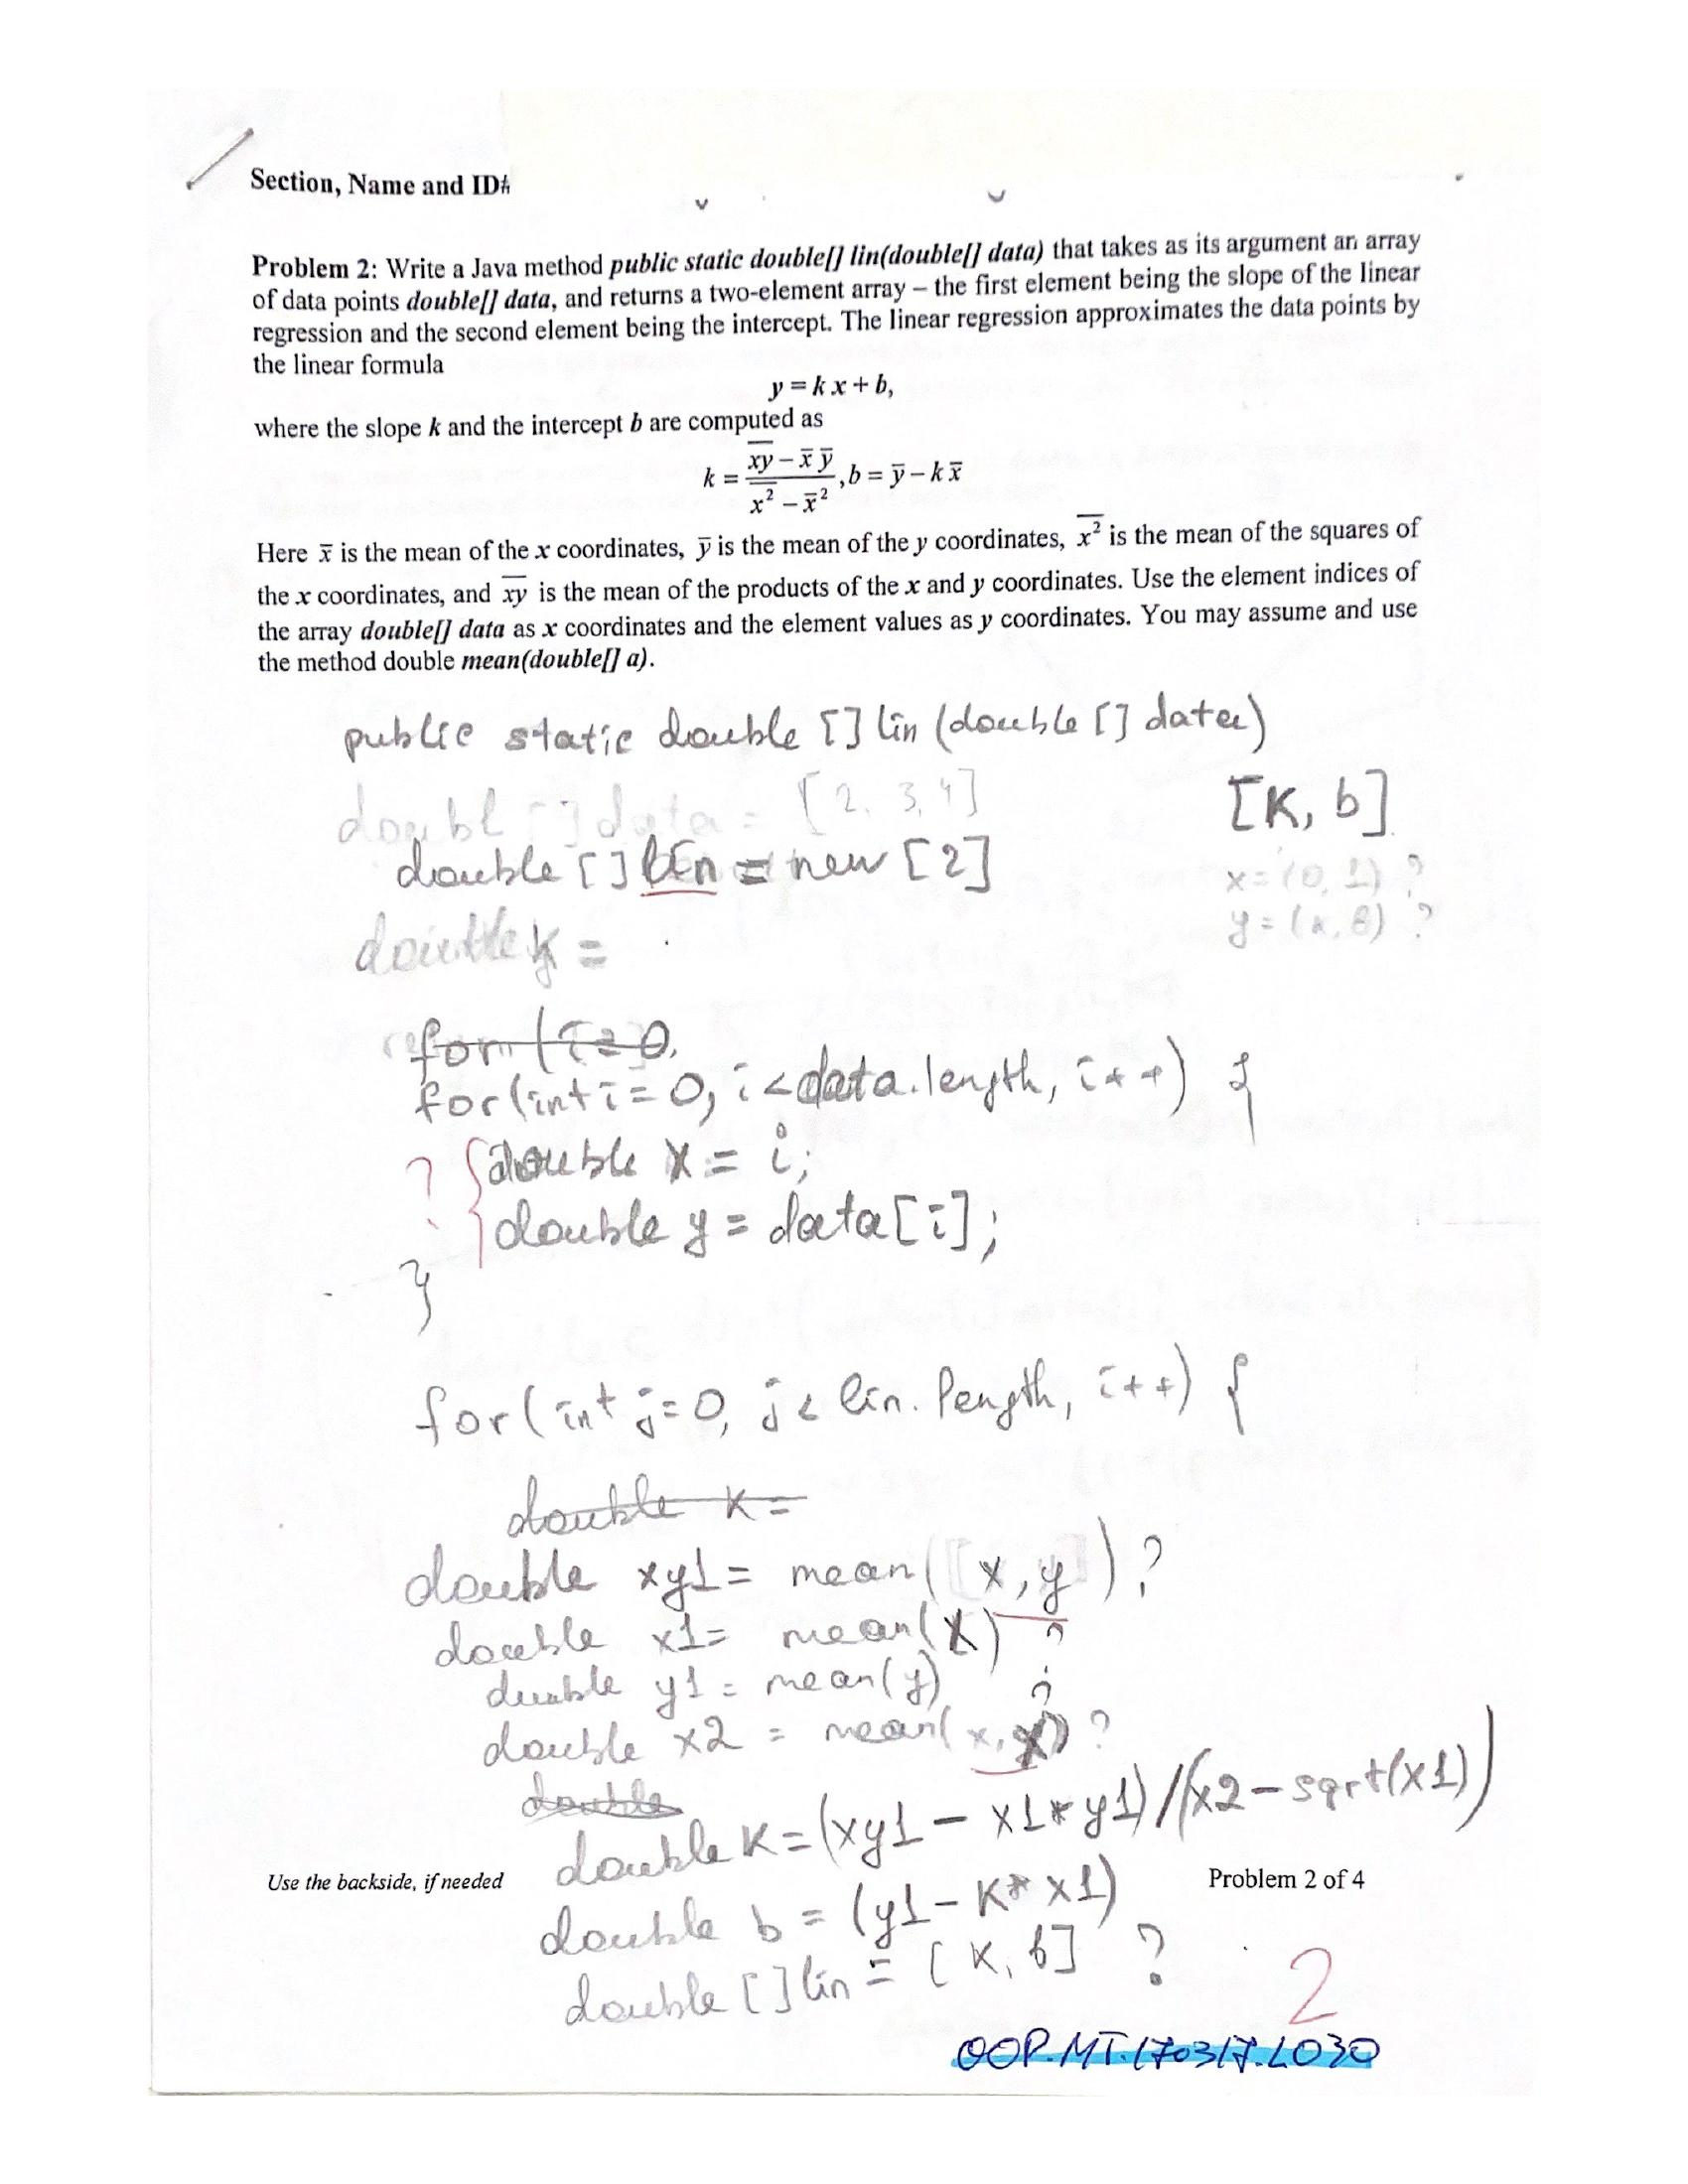 Section, Name and ID#
Problem 2: Write a Java method public static double[] lin(double[] data) that takes as its argument an array
of data points double[] data, and returns a two-element array – the first element being the slope of the linear
regression and the second element being the intercept. The linear regression approximates the data points by
the linear formula
y = k x + b,
where the slope k and the intercept b are computed as
k = (x̅y̅ – x̄ ȳ) / (x̅²̅ – x̄²) , b = ȳ – k x̄
Here x̄ is the mean of the x coordinates, ȳ is the mean of the y coordinates, x̅²̅ is the mean of the squares of
the x coordinates, and x̅y̅ is the mean of the products of the x and y coordinates. Use the element indices of
the array double[] data as x coordinates and the element values as y coordinates. You may assume and use
the method double mean(double[] a).
public static double [] lin (double [] data)
doubl [] data = [2, 3, 4]
[K, b]
double [] lin = new [2]
x = (0, 1) ?
y = (k, b) ?
double k =
for (i = 0,
for (int i = 0, i < data.length, i++) {
? { double x = i;
double y = data[i];
}
for (int j = 0, j < lin.length, i++) {
double k =
double xy1 = mean([x, y]) ?
double x1 = mean(x) ?
double y1 = mean(y) ?
double x2 = mean(x, x) ?
double
double K = (xy1 – x1 * y1) / (x2 – sqrt(x1))
Use the backside, if needed
Problem 2 of 4
double b = (y1 – K * x1)
double [] lin = [K, b] ?
2
OOP.MT.170317.L030